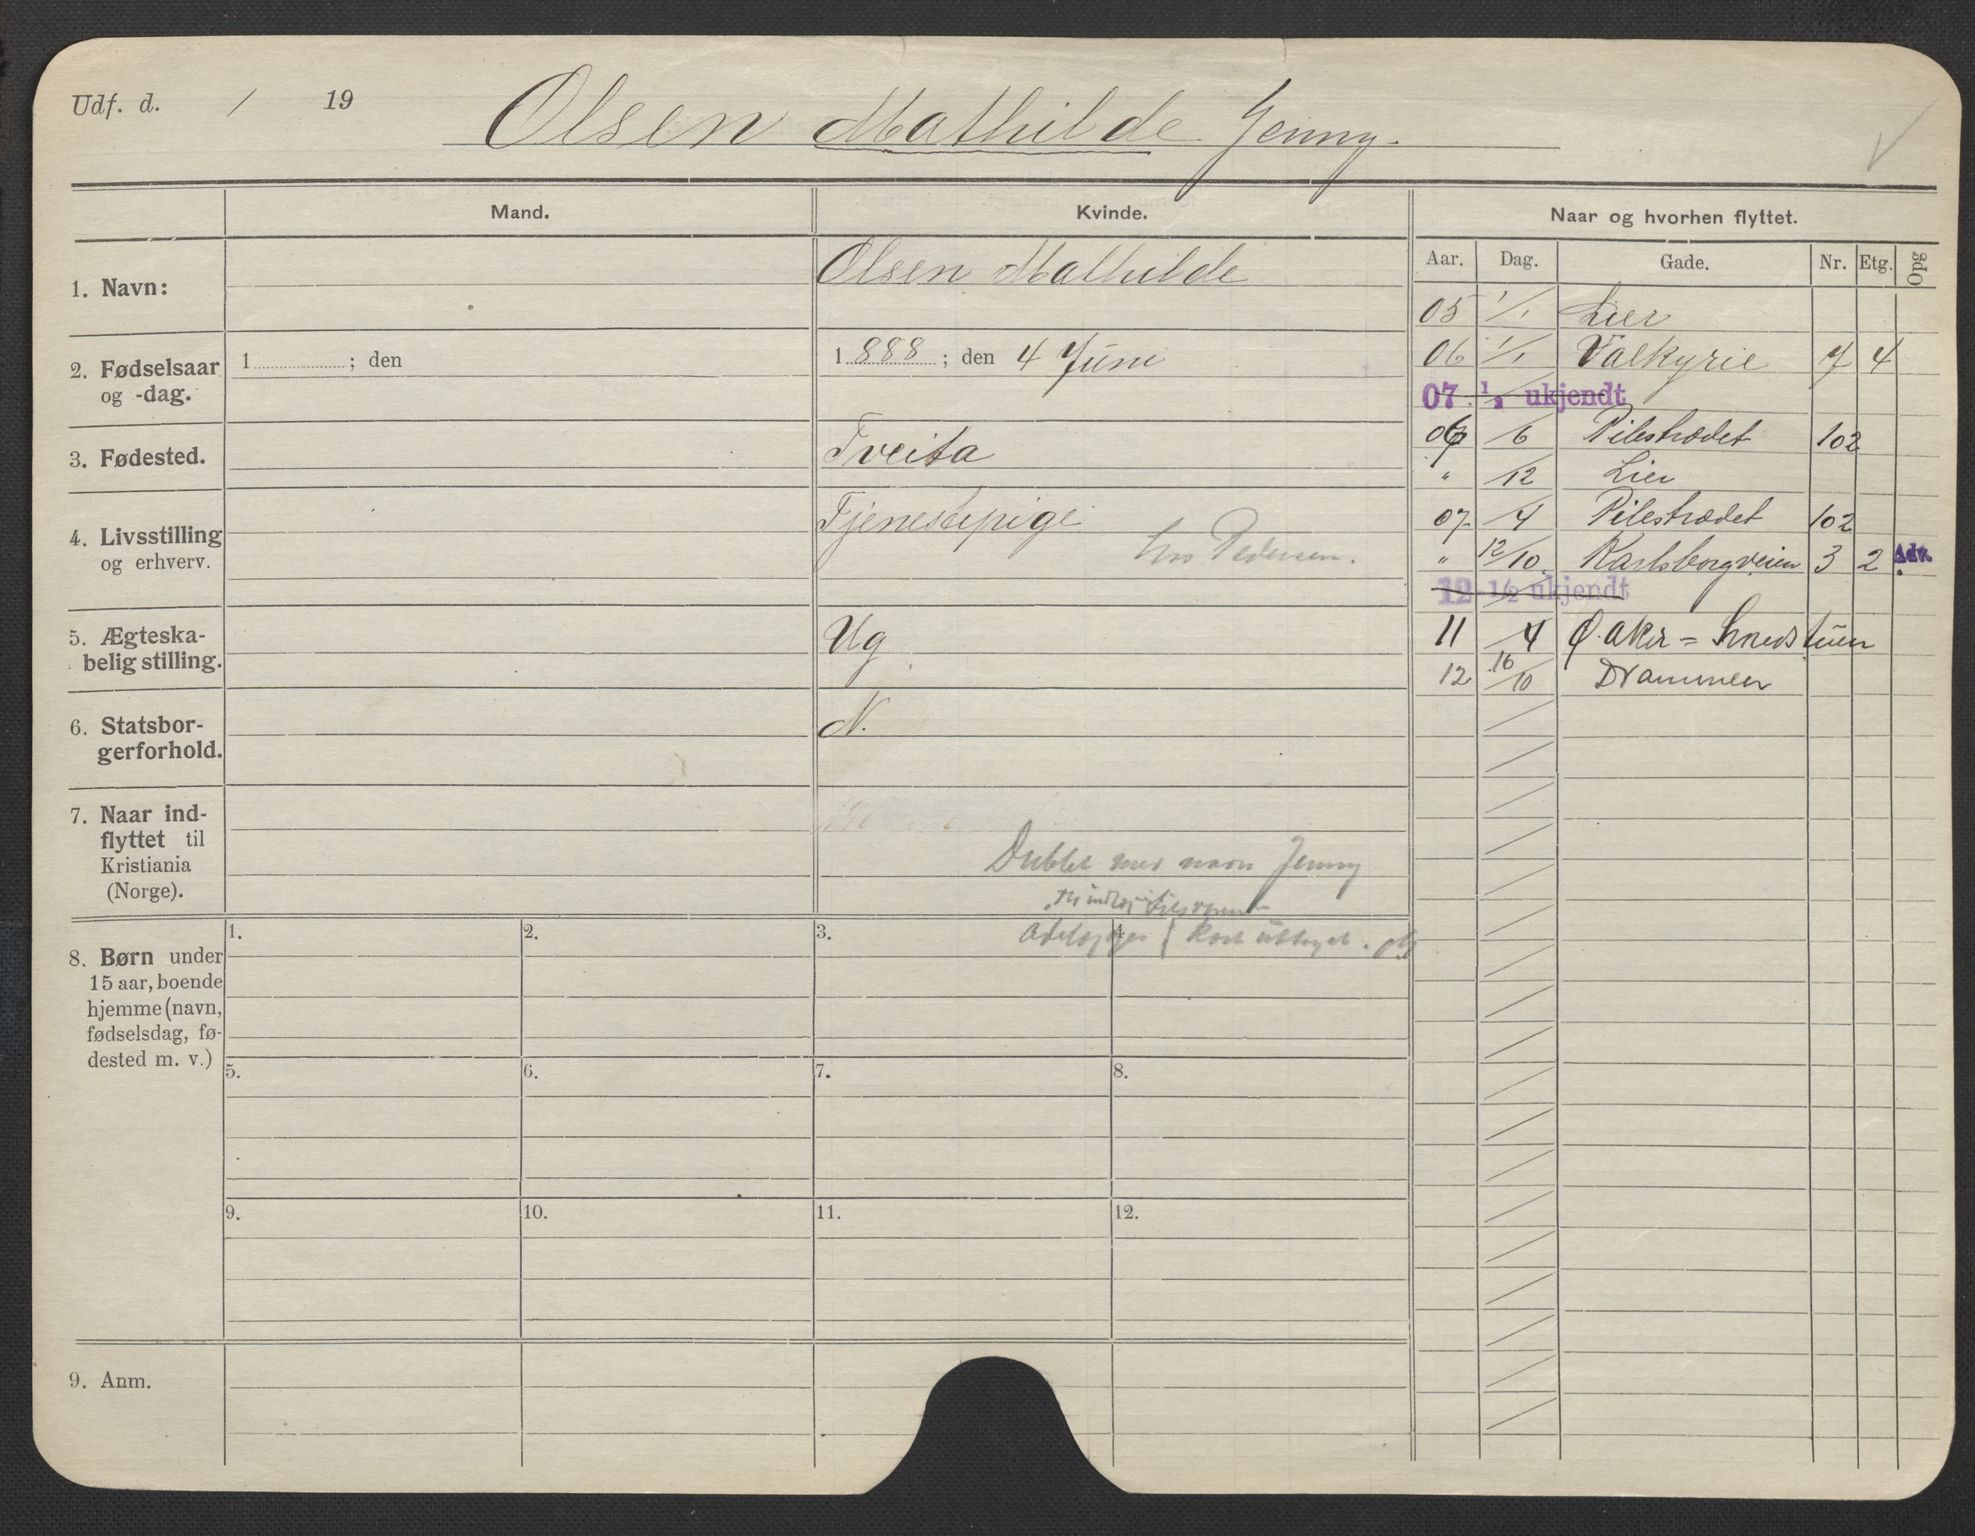 Udf. d. / 19
Olsen Mathilde Jenny.
Mand.
Kvinde.
Naar og hvorhen flyttet.
Aar. Dag. Gade. Nr. Etg. Opg
1. Navn:
Olsen Mathilde
2. Fødselsaar
og -dag.
1 ; den
1888 ; den 4 Juni
3. Fødested.
Tveita
4. Livsstilling
og erhverv.
Tjenestepige
hos Pedersen.
5. Ægteska-
belig stilling.
Ug
6. Statsbor-
gerforhold.
N.
7. Naar ind-
flyttet til
Kristiania
(Norge).
Dublet med navn Jenny
kort
8. Børn under
15 aar, boende
hjemme (navn,
fødselsdag, fø-
dested m. v.)
1. 2. 3. 4.
5. 6. 7. 8.
9. 10. 11. 12.
9. Anm.
05 1/1 Lier
06 1/1 Valkyrie 7 4
07 1/1 ukjendt
06 /6 Pilestrædet 102
" /12 Lier
07 /4 Pilestrædet 102
" 12/10 Karlsborgveien 3 2 Adr.
12 1/2 ukjendt
11 /4 Ø. Aker = Smedstuen
12 16/10 Drammen